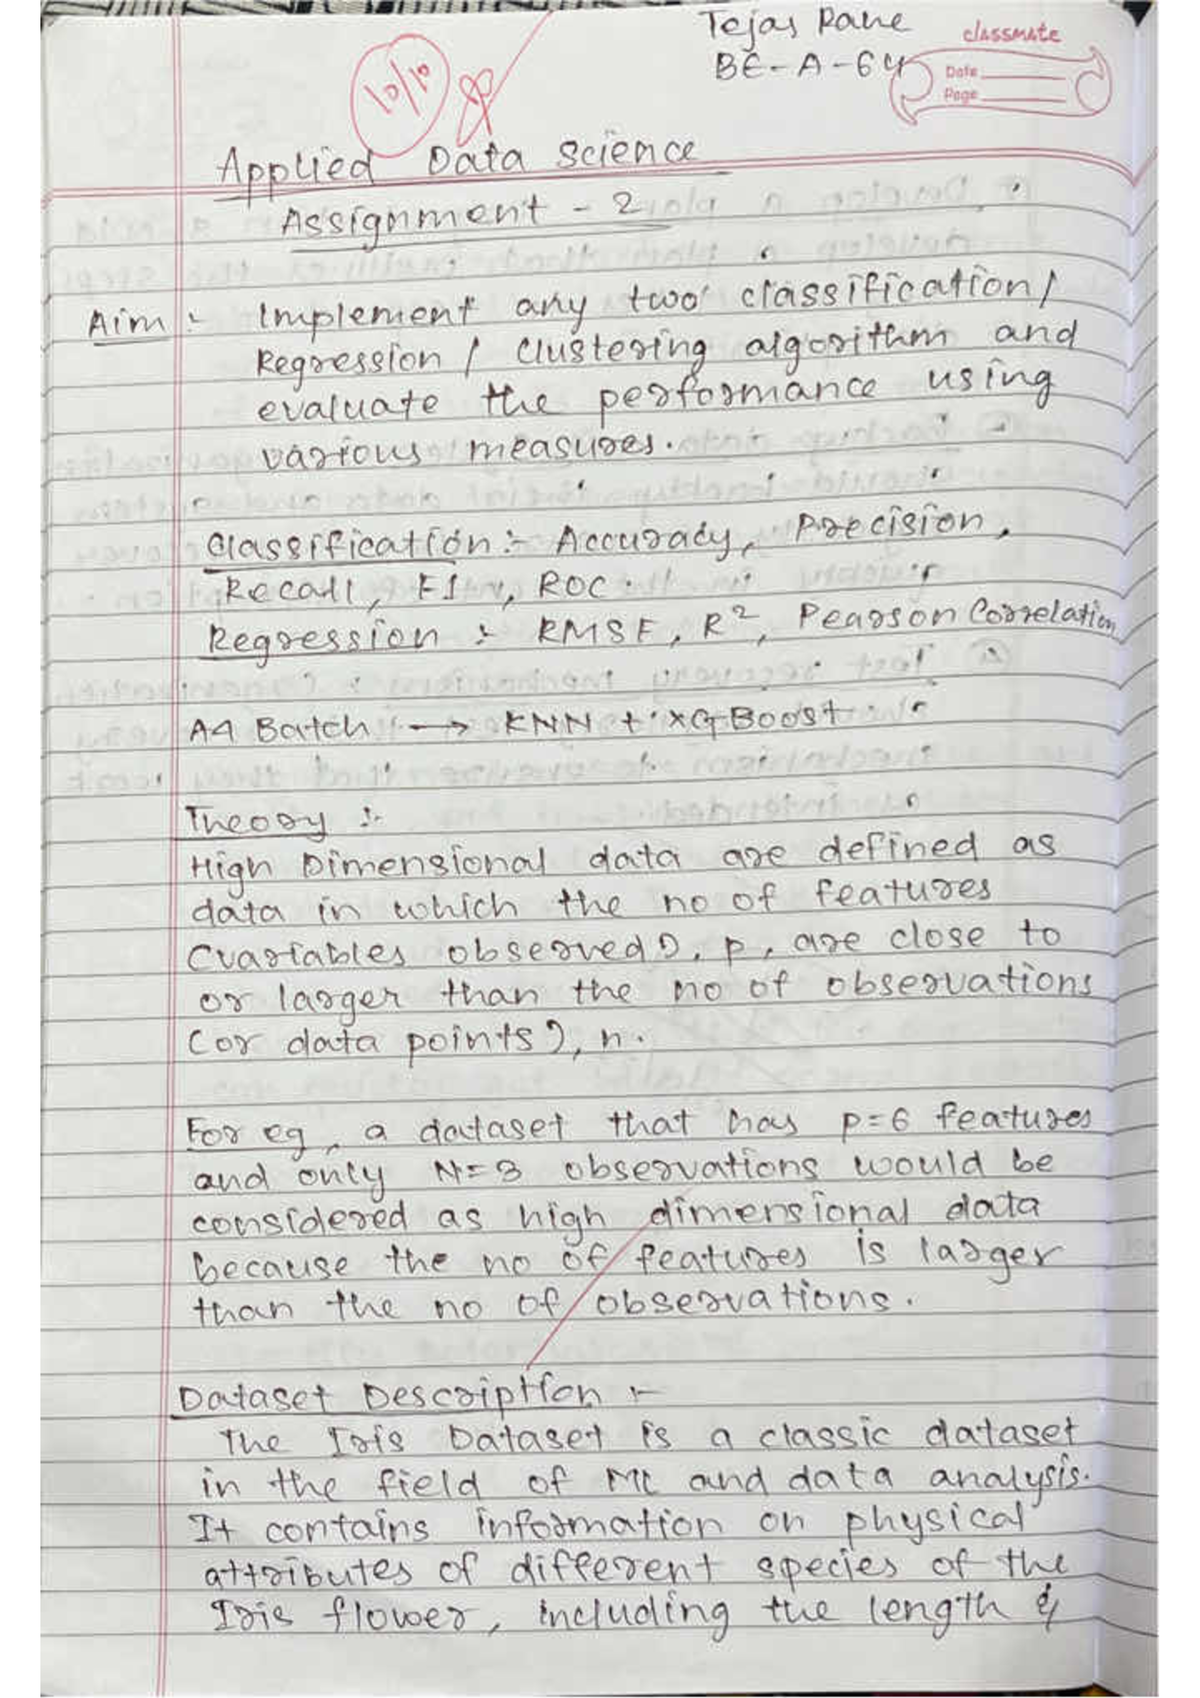 Tejas Rane
BE-A-64
classmate
Date
Page
10/10
Applied Data Science
Assignment - 2
Aim :- Implement any two classification/
Regression / Clustering algorithm and
evaluate the performance using
various measures.
Classification :- Accuracy, Precision,
Recall, F1, ROC
Regression :- RMSE, R², Pearson Correlation
A4 Batch → KNN + XGBoost
Theory :-
High Dimensional data are defined as
data in which the no of features
(variables observed), p, are close to
or larger than the no of observations
(or data points), n.
For eg, a dataset that has p=6 features
and only N=3 observations would be
considered as high dimensional data
because the no of features is larger
than the no of observations.
Dataset Description :-
The Iris Dataset is a classic dataset
in the field of ML and data analysis.
It contains information on physical
attributes of different species of the
Iris flower, including the length &